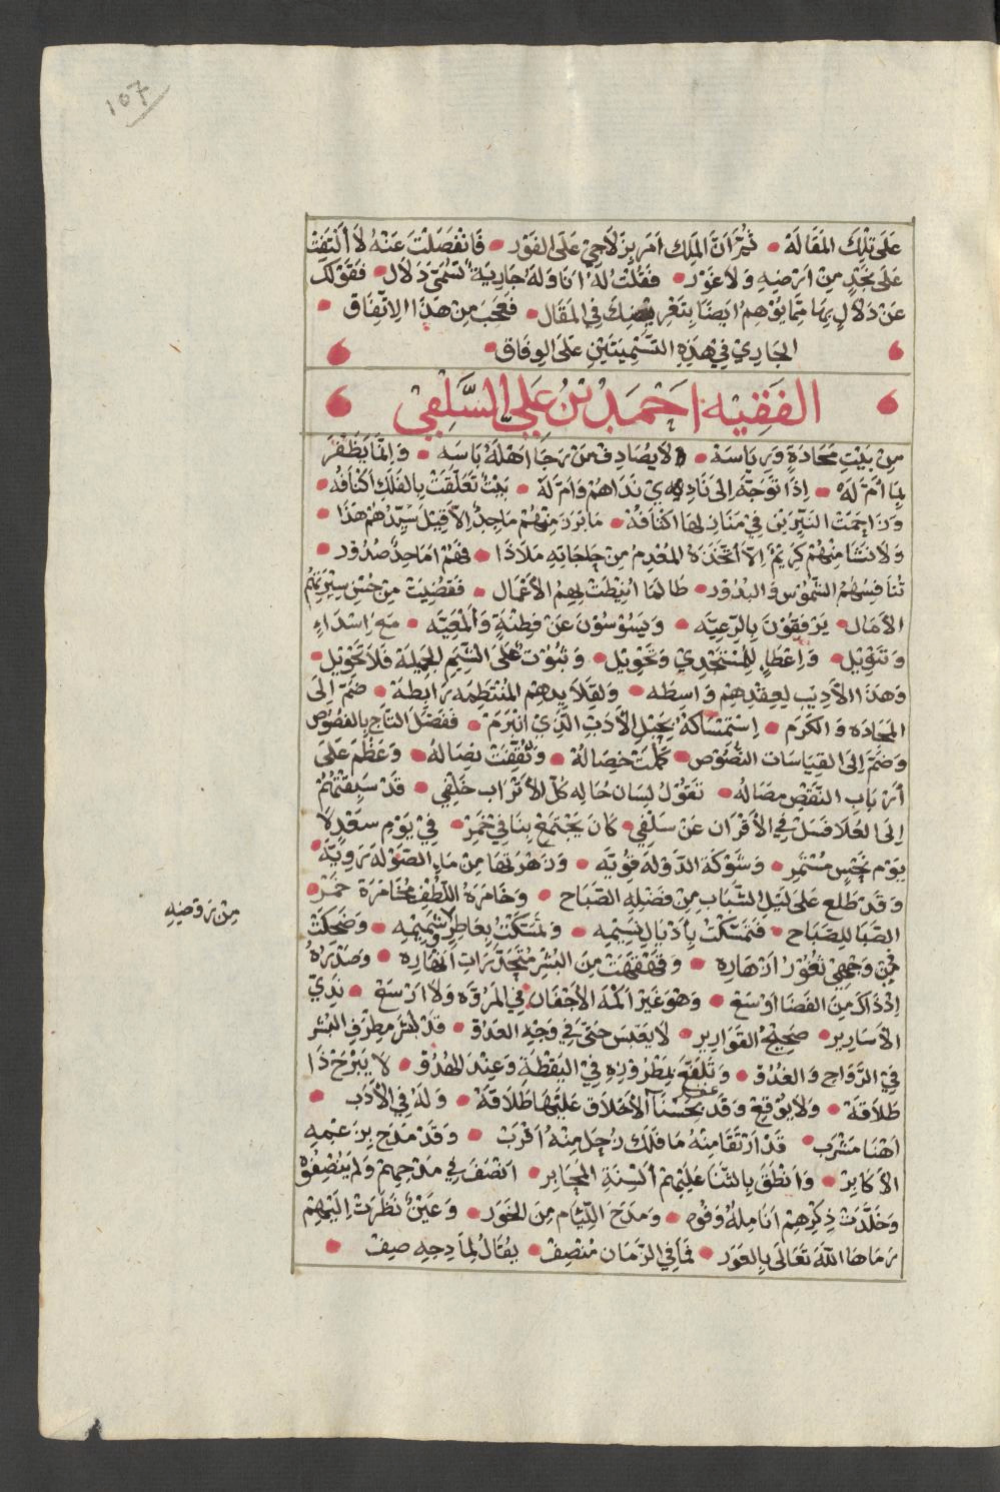 107
عَلَى تِلْكَ المَقَالَهْ • ثُمَّ اَنَّ المَلِك اَمَرَ بِنزِلَاجِيْ عَلَى الفَوْر • فَانْفَصَلْتَ عَنْهُ لَا أَلْتَفِتْ
عَلَى نَجْدٍ مِنْ اَرْضِهِ وَلَا غَوْر • فَقُلْتُ لَهُ اَنَا وَلَهُ جَارِيَة تُسَمَّى دَلَال • فَقَوْلَكَ
عَنْ دَلَالٍ بِهَا مِمَّا يُوْهِمُ اَيضًا بِتَعْرِيْضِكَ فِي المَقَال • فَعَجَبَ مِنْ هَذَا الِاتِّفَاق •
الجَارِيْ فِيْ هَذِهِ التَّسْمِيَتَيْنِ عَلَى الوِفَاق •
الفَقِيْه احْمَدْ بْنُ عَلِي السَّلَفِي
مِنْ بَيْتِ مَجَادَةٍ وَرِيَاسَهْ • لَا يُصَادِفْ مَنْ رَجَا اَهْلَهُ بَاسَه • وَاِنَّمَا يَظْفَرَ
بِمَا أَمَّ لَهْ • اِذَا تَوَجَّهَ اِلَى نَادِي نَدَاهُمْ وَاَمَّ لَهْ • بَيْتٌ تَعَلَّقَتْ بِالفَلَكِ اَكْنَافُهْ •
وَزَاحَمَتْ النَيِّرَيْن فِيْ مَنَازِلِهَا اكْنَافُهْ • مَا بَرَزَ مِنْهُمْ مَاجِدٌ اِلَّا قِيْلَ سَيِّدُهُمْ هَذَا •
وَلَا نَشَا مِنْهُمْ كَرِيْمٌ اِلَّا اتَّخَذَهُ المُعْدِمُ مِنْ حَاجَاتِهِ مَلَاذَا • فَهُمْ اَمَاجِدٌ صُدُوْر •
تُنَافِسُهُمُ الشُّمُوْس وَالبُدُوْر • طَالَمَا اُنِيْطَتْ بِهِمُ الأَعْمَال • فَقُضِيَتْ مِنْ حُسْنِ سِيْرَتِهُمُ
الآمَال • يَرْفَقُوْنَ بِالرَّعِيَّه • وَيَسُوْسُوْنَ عَنْ فِطْنَةٍ وَأَلْمَعِيَّه • مَعَ اِسْدَاءٍ
وَتَنْوِيْل • وَاِعْطَاءٍ لِلْمُسْتَجْدِيْ وَتَخْوِيْل • وَثُبُوْتٌ عَلَى الشِّيَمِ الجَمِيْلَه فَلَا تَحْوِيْل •
وَهَذَا الأَدِيْب لِعِقْدِهِمْ وَاسِطَه • وَلِقَلَايِدِهِمْ المُنْتَظِمَه رَابِطَهْ • ضَمَّ اِلَى
المَجَادَه وَالكَرَم • اِسْتِمْسَاكَهُ بِحَبْلِ الأَدَبِ الَّذِيْ انْبَرَم • فَفَضَلَ التَّاجِ بِالفُصُوْص
وَضَمَّ اِلَى القِيَاسَات النُّصُوْص • كَمُلَتْ خِصَالُهْ • وَثُقِّفَتْ نِصَالهُ • وَعَظُمَ عَلَى
أَرْبَابِ النَّقْصِ مِصَالُهُ • تَقُوْلُ لِسَان حَالِه كُلّ الأَتْرَاب خَلْفِي • قَدْ سَبَقْتُهُمْ
اِلَى العُلَا فَسَلْ فِي الأَقْرَان عَنْ سَلَفِي • كَانَ يَجْتَمِعْ بِنَا فِيْ خَمِرْ • فِيْ يَوْمِ سَعْدٍ لَا
يَوْم نَحْسٍ مُسْتَمِر • وَشَوْكَة الدَّوْلَه قَوِيَّه • وَزَهْرَتهَا مِنْ مَاءِ الصَّوْلَه رَوِيَّهْ •
وَقَدْ طَلَع عَلَى لَيْلِ الشَّبَابِ مِنْ فَضْلِهِ الصَّبَاح • وَخَامَرَهُ اللُّطْفُ مُخَامَرَة خَمْرِ •
الصَّبَا لِلصَّبَاح • فَتَمَسَّكْتُ بِأَذْيَالِ نَسِيْمِه • وَتَمَسَّكْتُ بِعَاطِرِ شَمِيْمِه • وَضَحِكَتْ
مِنْ رَوْضِهِ
فِيْ وَجْهِيْ ثُغُوْر اَزْهَارِه • وَقَهْقَهَتْ مِنَ البُشْرِ مُتَحَدِّرَاتِ اَنْهَارِه • وَصَدْرُهُ
اِذْ ذَاكَ مِنَ الفَضَا اَوْسَعْ • وَهُوَ غَيْرَ اَلْمَه الأَجْفَان فِي المَرْوَه وَلَا اَرْسَعْ • نَدِيَّ
الأَسَارِير • صَحِيْحُ القَوَارِير • لَا يَعْبَسُ حَتَّى فِي وَجْهِ العَدُوّ • قَدْ لَبِسَ مِطْرَفِ البُشْر
فِيْ الرَّوَاحِ وَالغُدُوّ • وَتَلَفَّعَ بِمَطْرُوْزِهِ فِيْ اليَقْظَةِ وَعِنْدَ الهُدُوّ • لَا يَبْرَحْ ذَا
طَلَاقَهْ • وَلَا يُوْقِعْ وَقَدْ تَحَسَّنَا الأَخْلَاق عَلَيْهَا طَلَاقَهْ • وَلَهُ فِي الأَدَب •
اَهْنَا مَشْرَب • قَدْ اَرْتَقَا مِنْهُ مَا فَلَكَ زُحَل مِنْهُ اَقْرَبْ • وَقَدْ مَدَحَ بِزَعْمِهِ
الأَكَابِرْ • وَاَنْطَقَ بِالثَّنَا عَلَيْهِمْ أَلْسِنَةِ المَحَابِر • اَنْصَفَ فِي مَدْحِهِمْ وَلَمْ يُنْصِفُوْهُ
وَخَلَّدَتْ ذِكْرِهِمْ اَنَامِلهُ وَفُوه • وَمَدَحَ اللِّئَام مِنَ الخَوَر • وَعَيْنٌ نَظَرَتْ اِلَيْهِمْ
رَمَاهَا اللهَ تَعَالَى بِالعَوَر • فَمَا فِي الزَّمَان مُنْصِفْ • يُقَالُ لِمَادِحِهِ صِفْ •